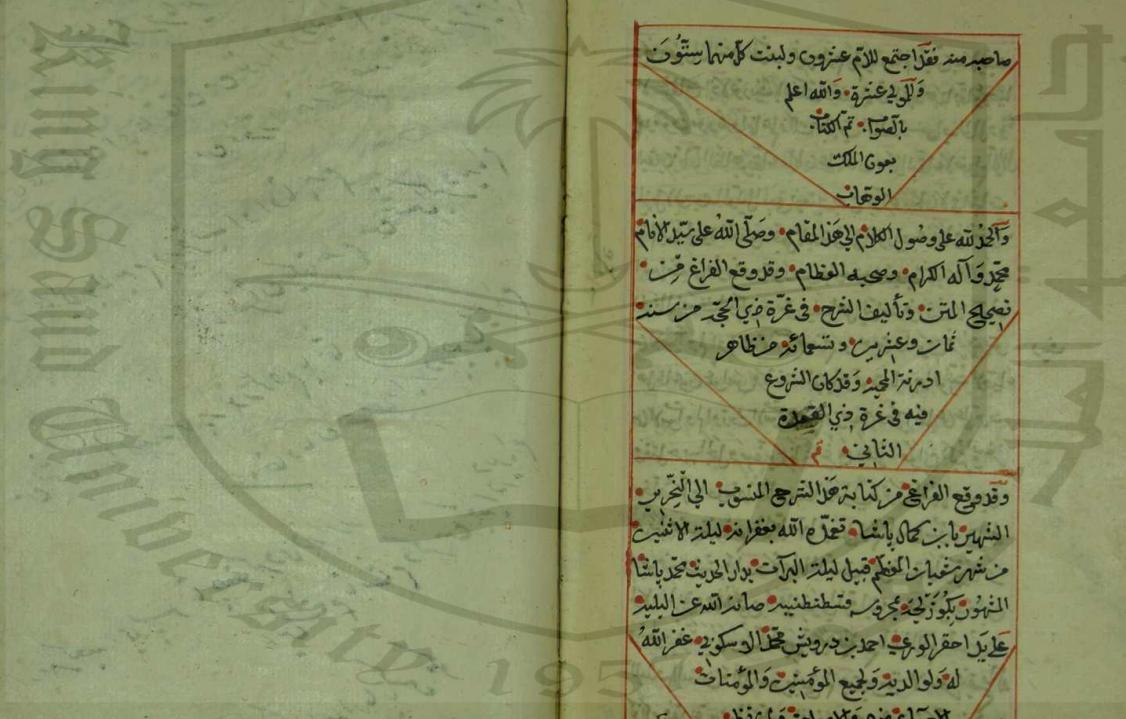 صاحبه منه فقد اجتمع للام عشرون ولبنت كل منهما ستون
وللمولى عشرة والله اعلم
بالصواب تم الكتاب
بعون الملك
الوهاب
والحمد لله على وصول الكلام الى هذا المقام وصلى الله على سيد الانام
محمد وآله الكرام وصحبه العظام وقد وقع الفراغ من
تصحيح المتن وتأليف الشرح في غرة ذي الحجة من سنة
ثمان وعشرين وتسعمائة من ظاهر
ادرنة المحمية وقد كان الشروع
فيه في غرة ذي القعدة
الثاني تم
وقد وقع الفراغ من كتابة هذا الشرح المنسوب الى النحرير
الشهير بابن كمال باشا تغمده الله بغفرانه ليلة الاثنين
من شهر شعبان المعظم قبيل ليلة البرآت بدار الحديث محمد باشا
المشهور بكوزلجه بمحروسة قسطنطنيه صانه الله عن البليه
على يد احقر الورى احمد بن درويش محمد الاسكوبي غفر الله
له ولوالديه ولجميع المؤمنين والمؤمنات
جامعة الملك
King Saud University
195